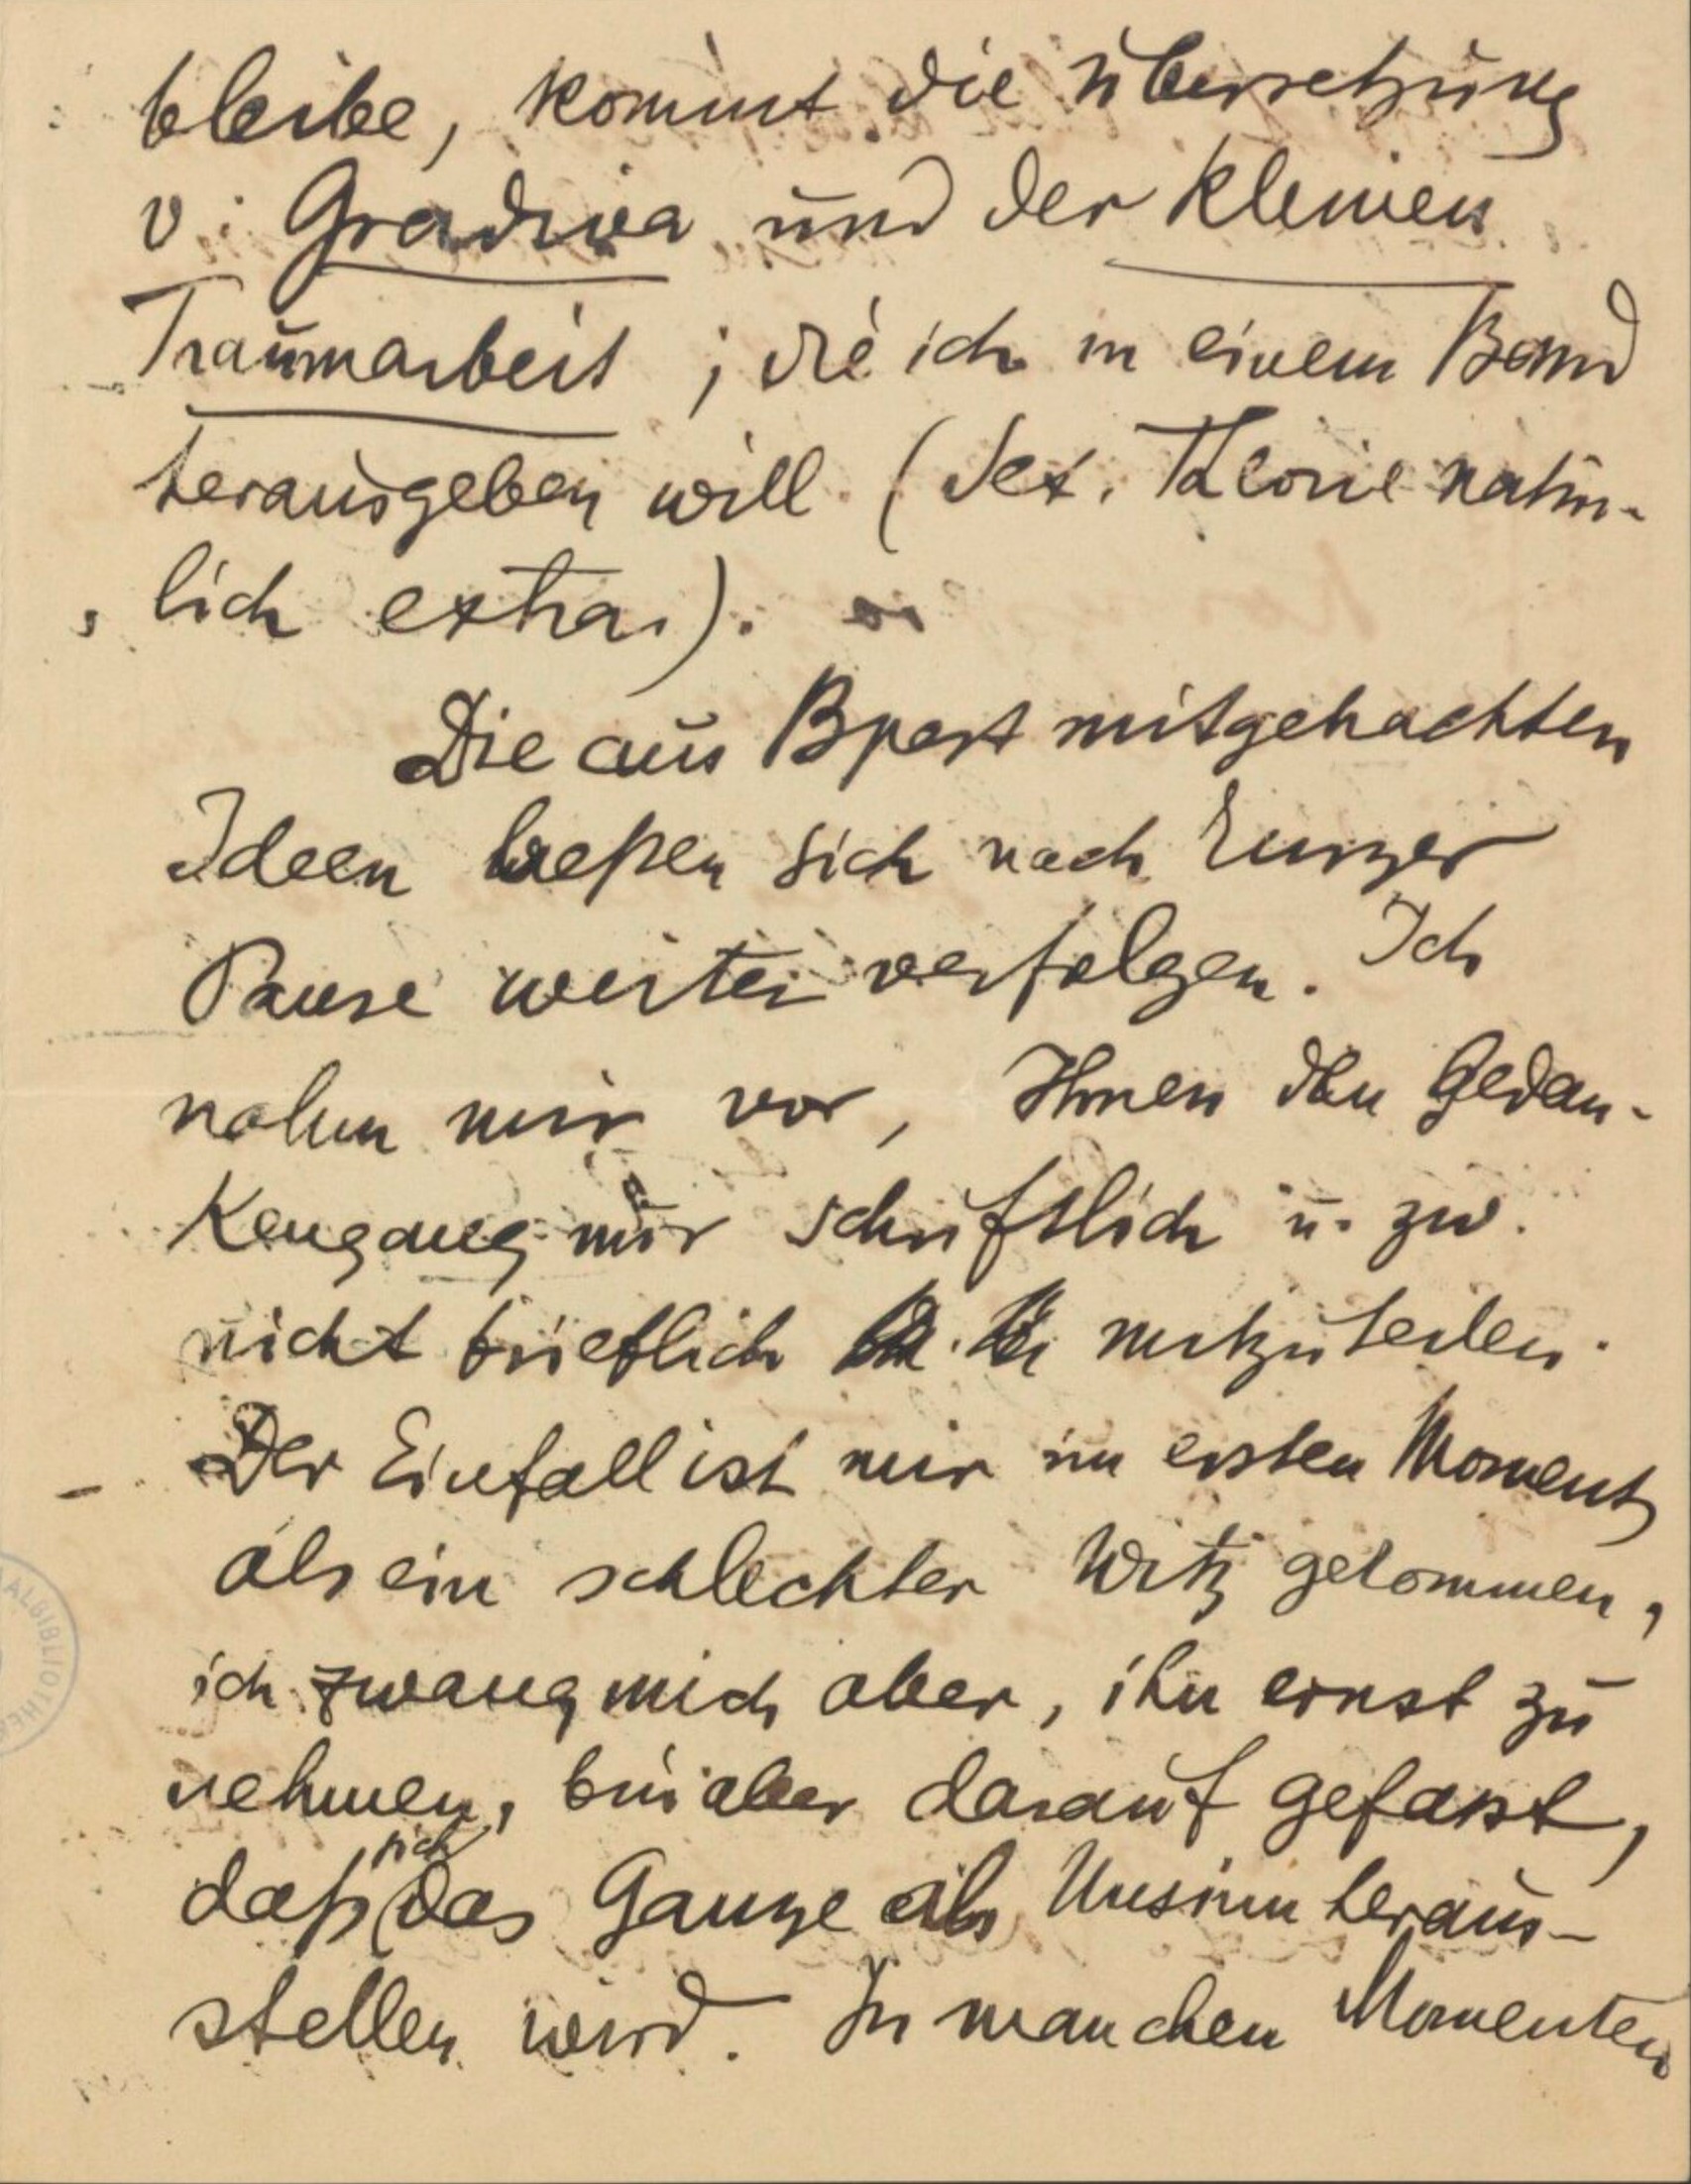 bleibe, kommt die Übersetzung
v. Gradiva und der kleinen
Traumarbeit, die ich in einem Band
herausgeben will. (Sex. Theorie natür-
lich extra.).
Die aus Bpest mitgebrachten
Ideen ließen sich nach kurzer
Pause weiter verfolgen. Ich
nahm mir vor, Ihnen den Gedan-
kengang nur schriftlich u. zw.
nicht brieflich mitzuteilen.
Der Einfall ist mir im ersten Moment
als ein schlechter Witz gekommen,
ich zwang mich aber, ihn ernst zu
nehmen, bin aber darauf gefasst,
daß sich das Ganze als Unsinn heraus-
stellen wird. In manchen Momenten
ALBIBLIOTHEK